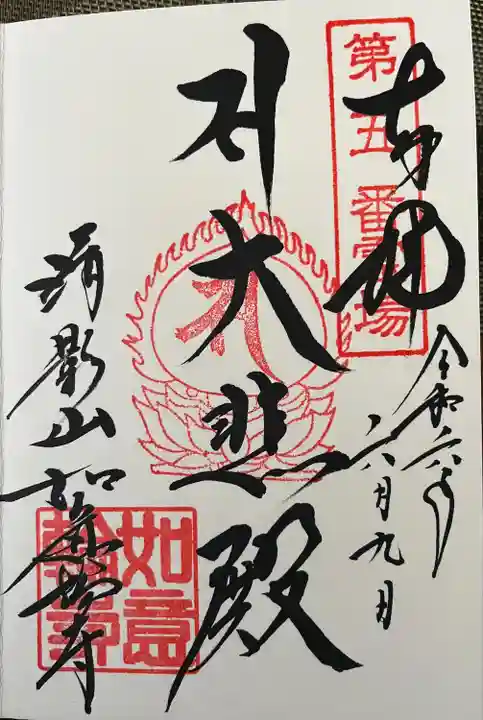 奉拝
第五番霊場
令和六年
月九日
大悲殿
清影山
如意輪寺
如意
輪寺